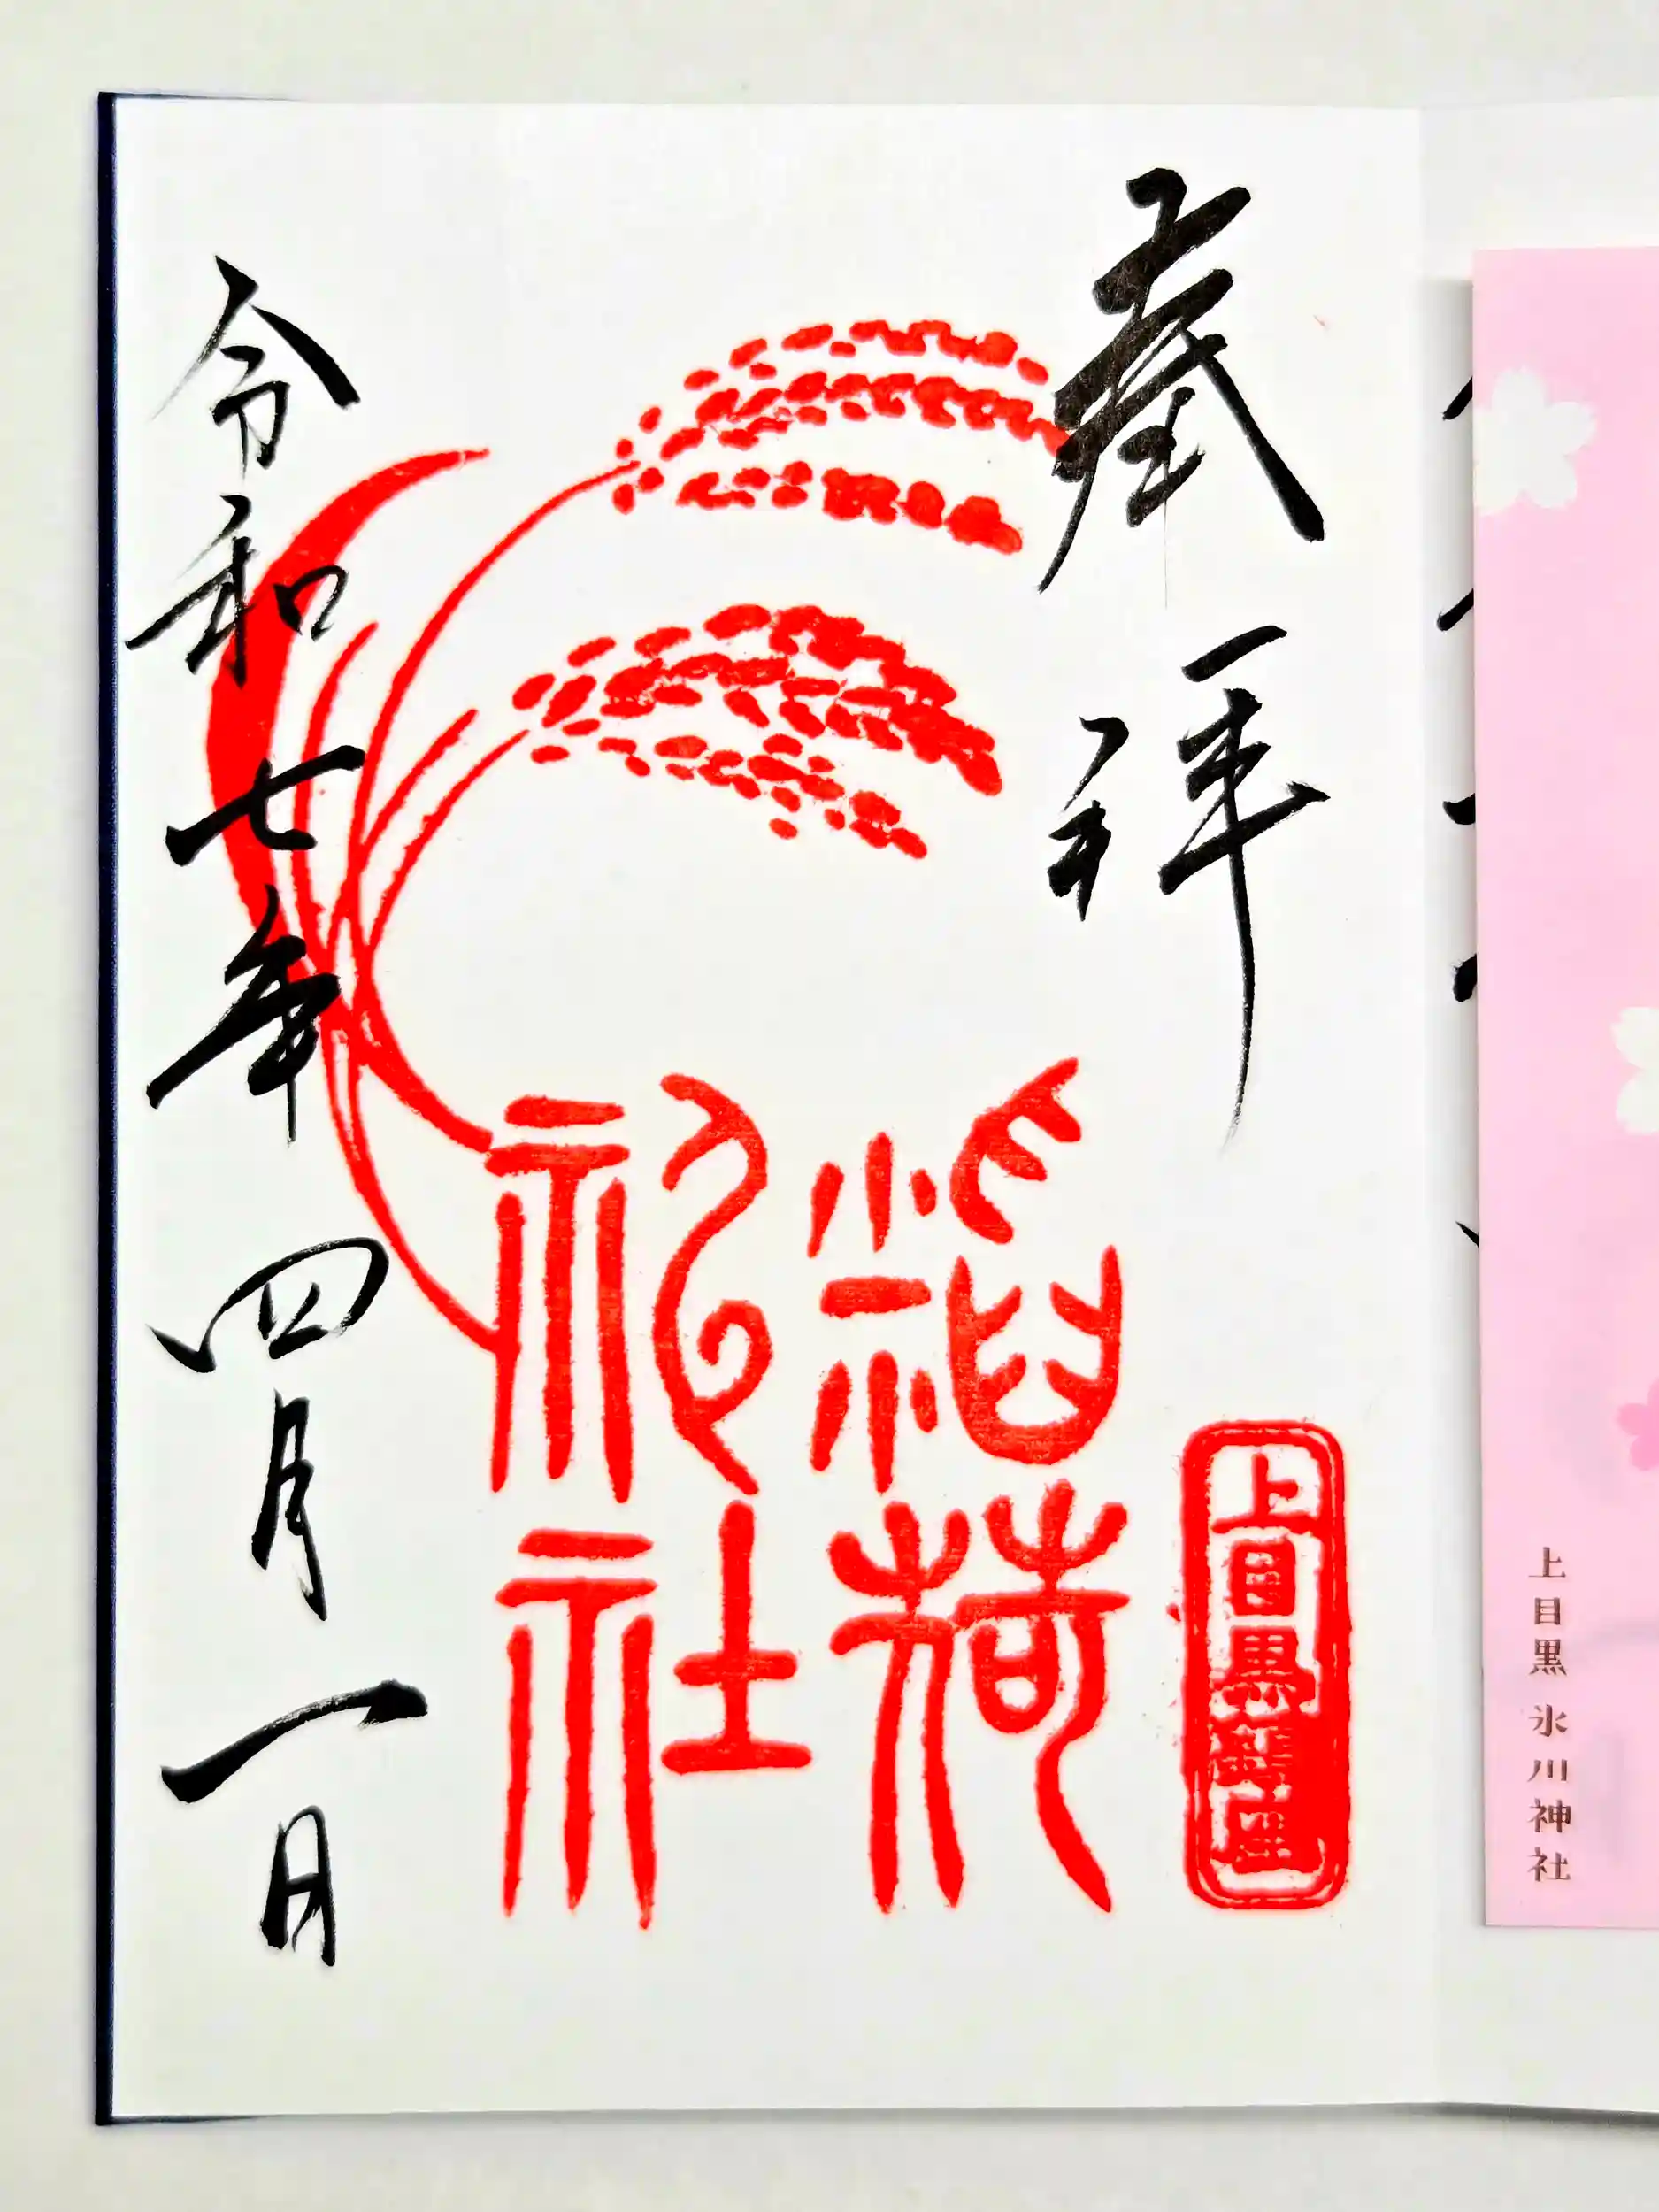 上目黒 氷川神社
奉拝
上目黒鎮座
稲荷
神社
令和七年 四月 一日